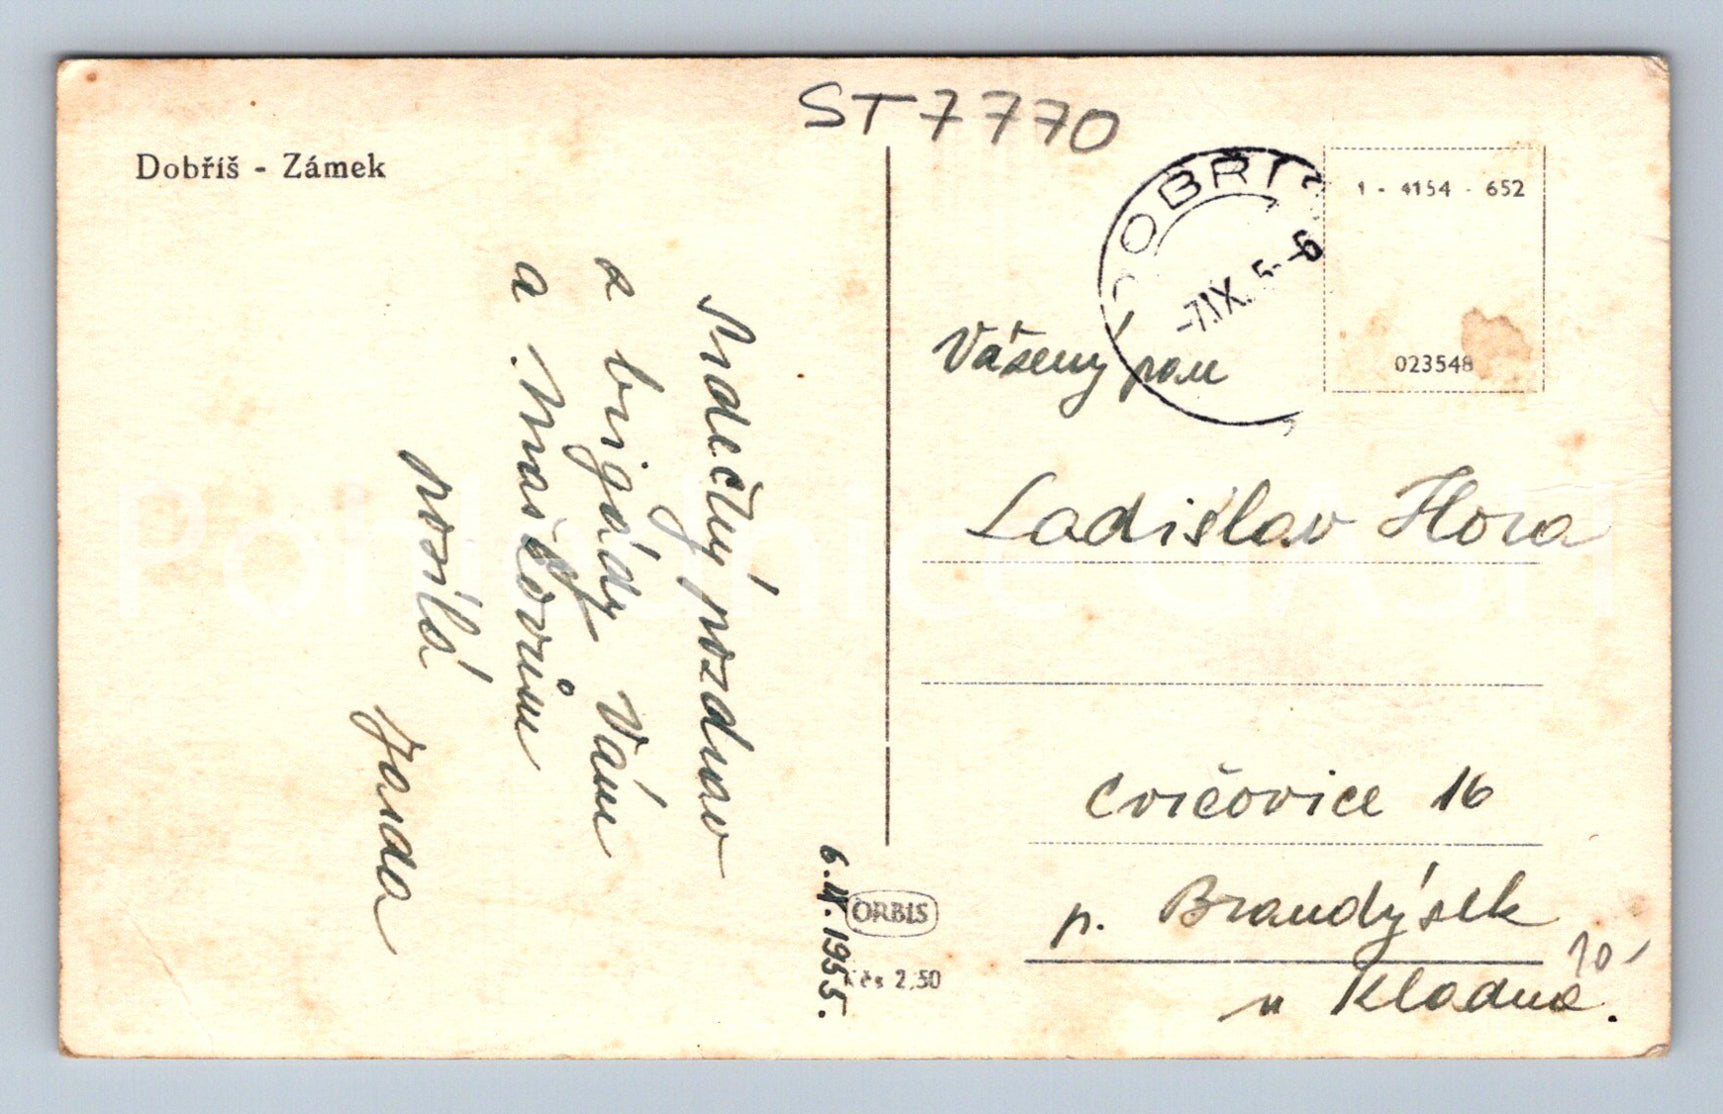 ST 7770
Dobříš - Zámek
Srdečný pozdrav
z brigády Vám
a
posílá
Janda
6.IX.1955.
ORBIS
Kčs 2,50
DOBŘÍ
-7.IX.5 -6
1 - 4154 - 652
023548
Vážený pan
Ladislav Hora
Cvrčovice 16
p. Brandýsek
u Kladna.
20,-